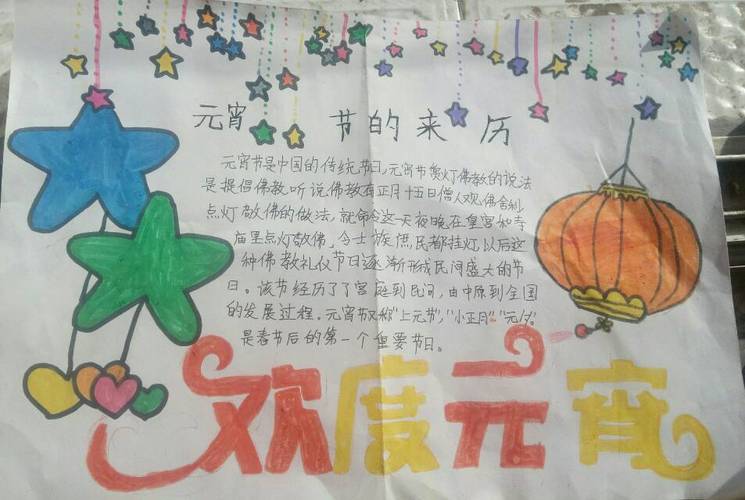 元宵 节的来历
元宵节是中国的传统节日,元宵节赏灯佛教的说法
是提倡佛教,听说佛教有正月十五日僧人观佛舍利,
点灯敬佛的做法,就命令这一天夜晚在皇宫和寺
庙里点灯敬佛,令士族庶民都挂灯,以后这
种佛教礼仪节日逐渐形成民间盛大的节
日。该节经历了了宫庭到民间,由中原到全国
的发展过程。元宵节又称"上元节","小正月""元夕"
是春节后的第一个重要节日。
欢度元宵